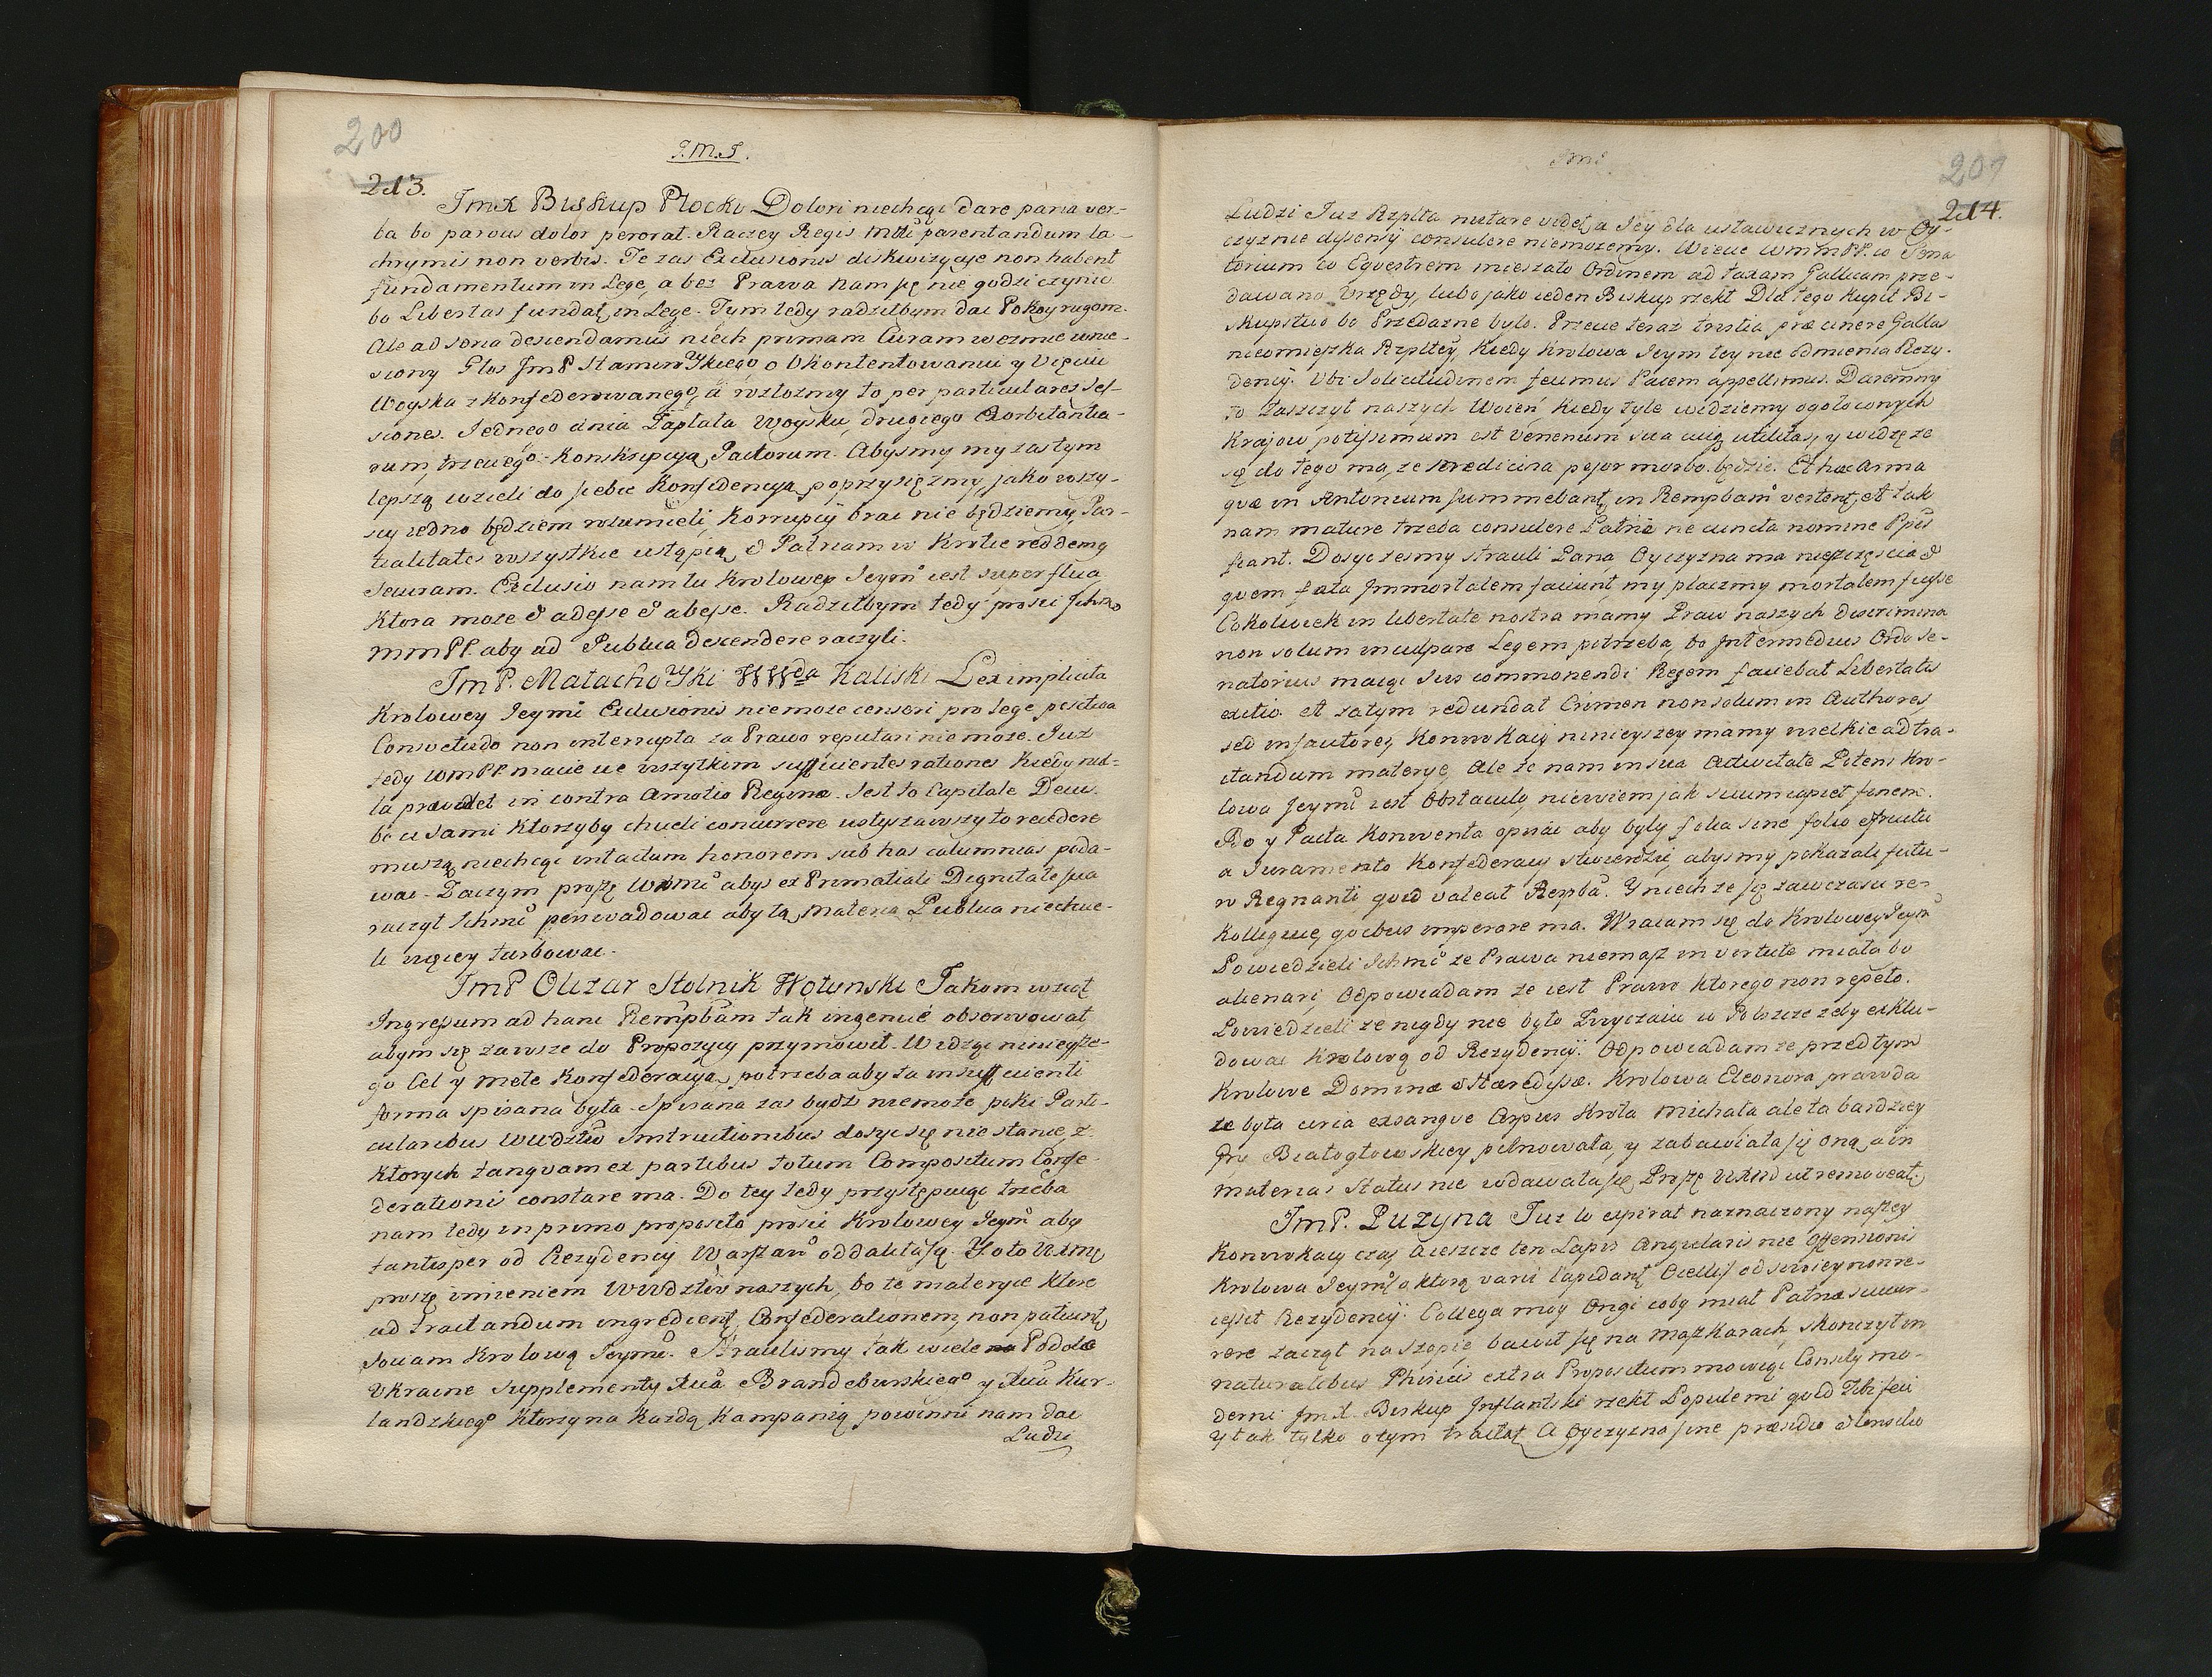 200
J.M.J.
213.
JmX Biskup Płocki Dolori niechcąc dare paria ver-
ba bo parvus dolor perorat. Raczey Regis Mtti parentandum la-
chrymis non verbis. Te zas Exclusionis diskwizycye non habent
fundamentum in Lege, a bez Prawa nam się nie godzi czynic
bo Libertas fundat in Lege. Tym tedy radziłbym dac Pokoy rugom.
Ale ad seria descendamus niech primam Curam wezmie wnie-
siony Głos JmP Stamirowskiego o Ukontentowaniu y Ujęciu
Woyska zkonfederowanego, a rozłozmy to per particulares Ses-
siones. Jednego dnia Zapłata Woysku, drugiego Exorbitantia-
rum, trzeciego Konskrypcya Pactorum. Abysmy my zas tym
lepszą wzieli do siebie Konfidencyą poprzysięzmy, jako wszy-
scy jedno będziem rozumieli, Korrupcij brac nie będziemy, Par-
tialitates wszystkie ustąpią, & Patriam w krotce reddemg
securam. Exclusio nam tu Krolowey Jeymci iest superflua
Ktora moze & adesse & abesse. Radziłbym tedy prosic Jchmo
mmPP. aby ad Publica descendere raczyli.
JmP. Małachoski WWda Kaliski Lex implicita
Krolowey Jeymci Exclusionis niemoze censeri pro lege positiva
Consvetudo non interrupta za Prawo reputari nie moze. Juz
tedy WmPP. macie we wszytkim sufficientes rationes kiedy nul-
la praevidet in contra Amotio Reginae. Jest to Capitale Decus.
bo ci sami ktorzyby chcieli concurrere usłyszawszy to recedere
muszą niechcąc intactum honorem sub has calumnias poda-
wac. Zaczym proszę Wxmci abys ex Primatiali Dignitate sua
raczył Jchmci perswadowac aby tą materią Publica niechcie-
li więcy turbowac.
JmP Olizar Stolnik Wołynski Jakom wziął
Ingressum ad hanc Rempbam tak ingenue obserwował
abym się zawsze do Propozycij przymowił. Widząc ninieysze-
go Cel y mete Konfederacyą, potrzeba aby ta in sufficienti
forma spisana była. Spisana zas bydz niemoze poki Parti-
cularibus Wwdztw Instructionibus dosyc się nie stanie, z
ktorych tanquam ex partibus totum Compositum Confe-
derationis constare ma. Do tey tedy przystępuiąc trzeba
nam tedy in primo proposito prosic Krolowey Jeymci aby
tantisper od Rezydencij Warszaw oddaliła się. Y o to WXmci
proszę imieniem Wwdztw naszych, bo te materye ktore
ad tractandum ingredient Confederationem, non patiunt
sociam Krolową Jeymci. Straciliśmy tak wiele Podole
Ukraine supplementy Xcia Brandeburskiego y Xcia Kur-
landzkiego ktorzy na kazdą Kampanią powinni nam dac
Ludzi
Jmć
201
214.
Ludzi Juz Rzplta nutare videt, a Jey dla ustawicznych w Oy-
czyznie dysensij consulere niemozemy. Wiecie WmmPP. co Sena
torium co Eqvestrem mieszało Ordinem ad taxam Gallicam prze-
dawano Urzędy, lubo jako ieden Biskup rzekł Dla tego kupił Bi-
skupstwo bo Przedazne było. Przecie teraz tristia prae cinere Gallas
nieomieszka Rzpltey, kiedy Krolowa Jeym tey nie odmienia Rezy-
dencij. Ubi solicitudinem fecimus Pacem appellimus. Daremny
to zaszczyt naszych Woien kiedy tyle widziemy ogołoconych
Krajow potissimum est venenum sua cuiq utilitas, y widzę ze
się do tego ma, ze medicina pejor morbo będzie. Et haec Arma
quae in Antonium summebant, in Rempbam vertent, et tak
nam mature trzeba consulere Patriae ne cuncta nomine Ppis
fiant. Dosyc zesmy stracili Pana, Oyczyzna ma nieszczęscia &
quem fata Immortalem faciunt my płaczmy mortalem fuisse
Cokolwiek in libertate nostra mamy Praw naszych discrimina
non solum inculpare Legem potrzeba, bo Intermedius Ordo Se-
natorius maiąc Jus commonendi Regem faciebat Libertatis
exitio. et zatym redundat Crimen non solum in Authores,
sed in fautores, Konwokacij ninieyszey mamy wielkie ad tra-
ctandum materye, Ale ze nam in sua Activitate Potens Kro-
lowa Jeymci iest Obstaculo, niewiem jak suum capiet finem.
Bo y Pacta Konwenta spisac aby były folia sine folio & fructu
a Juramento Konfederacij stwierdzic, abysmy pokazali futu-
ro Regnanti quid valeat Respba. Y niech ze się zawczasu re-
kolliguie, quibus imperare ma. Wracam się do Krolowey Jeym
Powiedzieli Jchmci ze Prawa niemasz in virtute miała bo
alienari, Odpowiadam ze iest Prawo ktorego non repeto.
Powiedzieli ze nigdy nie było Zwyczaiu w Polszcze zeby exklu-
dowac Krolową od Rezydencij. Odpowiadam ze przed tym
Krolowe Dominae & Haeredissae. Krolowa Eleonora prawda
ze była circa exsangve Corpus Krola Michała ale ta bardziey
Gry Białogłowskiey pilnowała, y zabawiała się oną, a in
materias Status nie wdawała się, Proszę WXmci ut removeat.
JmP. Puzyna Juz to expirat naznaczony naszey
Konwokacij czas a ieszcze ten Lapis Angularis nie offensionis
Krolowa Jeymci o ktorą varii lapidant Ocellis od swoiey nonre-
cessit Rezydencij. Collega moy Ongi coby miał Patriae succur-
rere zaczął na szopie bawił się na maszkarach, skonczył in
naturalibus Phisicis extra Propositum mowiąc Consily mo-
derni JmX. Biskup Inflantski rzekł Popule mi quid Tibi feci
y tak tylko o tym tractat, A Oyczyzna sine praesidio & Consilio